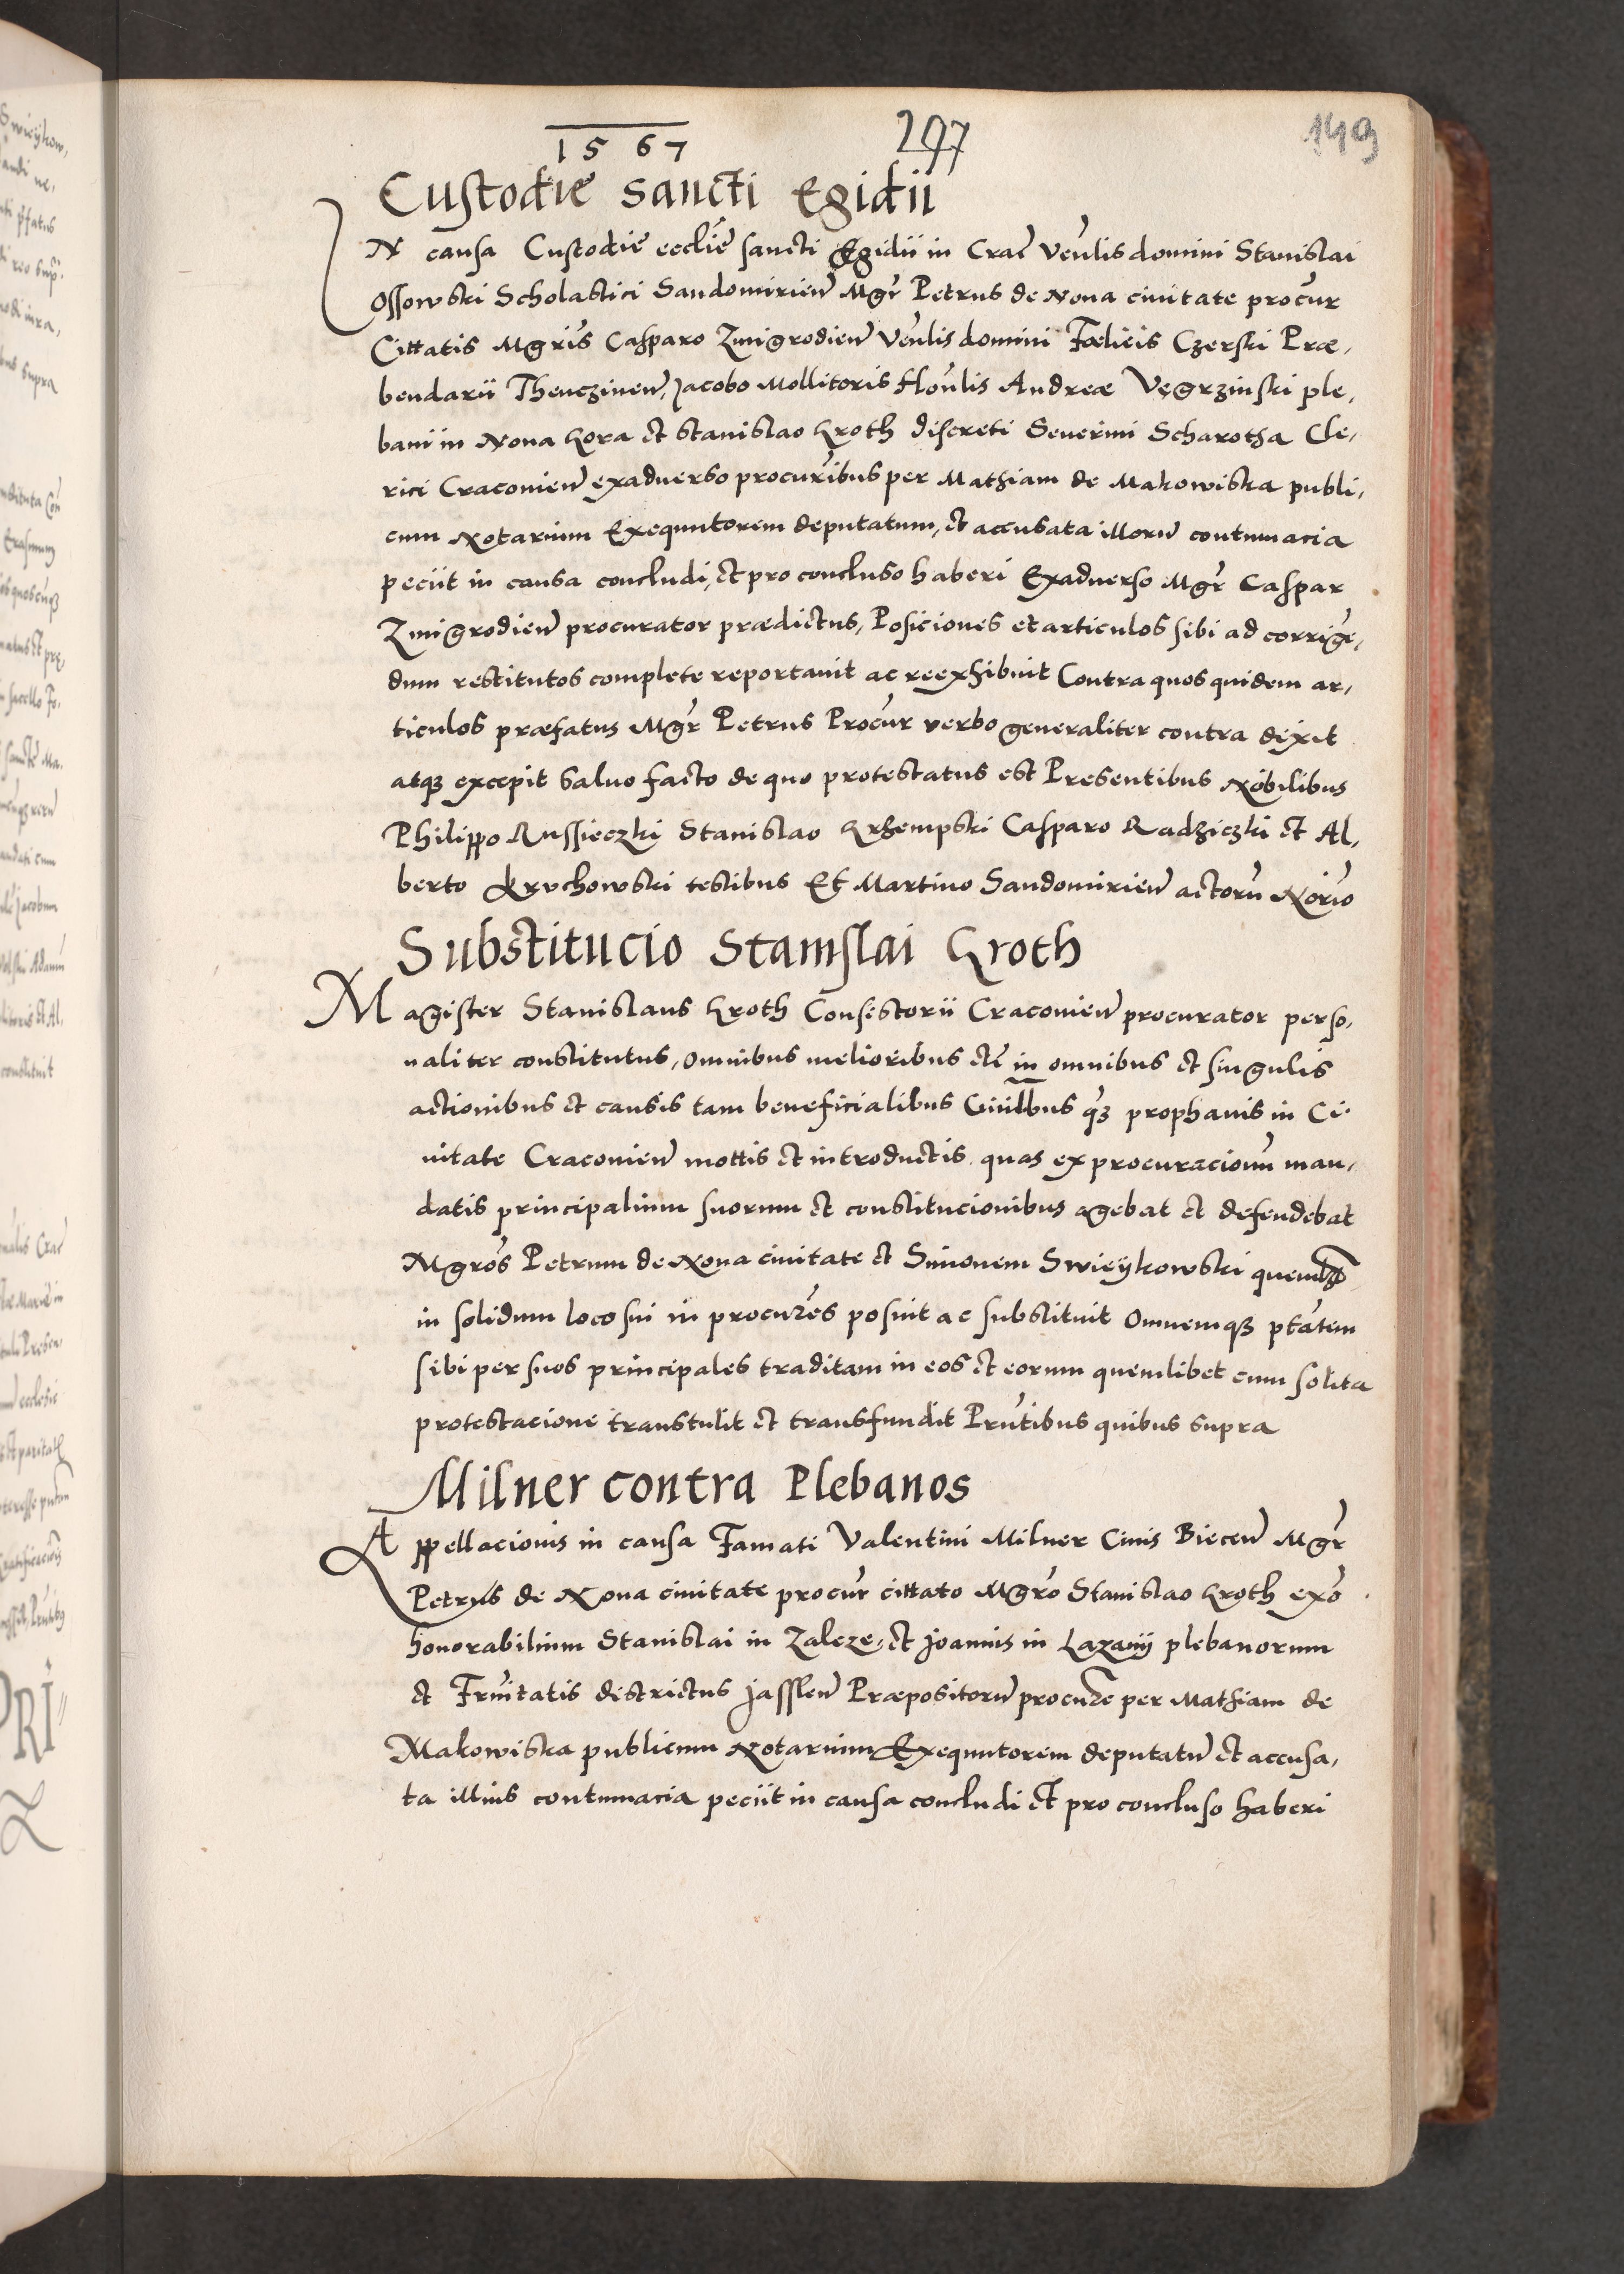 1567 297 149
Custodie sancti Egidii
IN causa Custodie ecclie sancti Egidii in Crac Venlis domini Stanislai
Ossowski Scholastici Sandomirien Mgr Petrus de Nova civitate procur
Cittatis Mgris Casparo Zmigrodien Venlis domini Fœlicis Czerski Præ,
bendarii Thencziuen, Jacobo Mollitoris Honlis Andreæ Vęgrzinski ple,
bani in Nova Gora et Stanislao Kroth discreti Severini Scharotha Cle,
rici Craconien exadverso procuribus per Mathiam de Makowiska publi,
cum Notarium Exequutorem deputatum, et accusata illoru contumacia
peciit in causa concludi, et pro concluso haberi Exadverso Mgr Caspar
Zmigrodien procurator prædictus, Posiciones et articulos sibi ad corrige,
dum restitutos complete reportavit ac reexhibuit Contra quos quidem ar,
ticulos præfatus Mgr Petrus Procur verbo generaliter contra dixit
atq excepit salvo facto de quo protestatus est Presentibus Nobilibus
Philippo Russieczki Stanislao Krzempski Casparo Radziczki et Al,
berto Kruchowski testibus Et Martino Sandomirien actoru Norio
Substitucio Stanislai Kroth
Magister Stanislaus Kroth Consistorii Craconien procurator perso,
naliter constitutus, omnibus melioribus etc in omnibus et singulis
actionibus et causis tam beneficialibus Civilibus q prophanis in Ci
vitate Craconien mottis et introductis quas ex procuracionu man,
datis principalium suorum et constitucionibus agebat et defendebat
Mgros Petrum de Nova civitate et Simonem Swieykowski quemlibet
in solidum loco sui in procures posuit ac substituit Omnemq ptatem
sibi per suos principales traditam in eos et eorum quemlibet cum solita
protestacione transtulit et transfundit Pruntibus quibus supra
Milner contra Plebanos
Appellacionis in causa Famati Valentini Milner Civis Biecen Mgr
Petrus de Nova civitate procur cittato Mgro Stanislao Kroth exo
honorabilium Stanislai in Zaleze, et Joannis in Lazany plebanorum
et Frnitatis districtus Jasslen Præpositoru procure per Mathiam de
Makowiska publicum Notarium Exequutorem deputatu et accusa,
ta illius contumacia peciit in causa concludi et pro concluso haberi